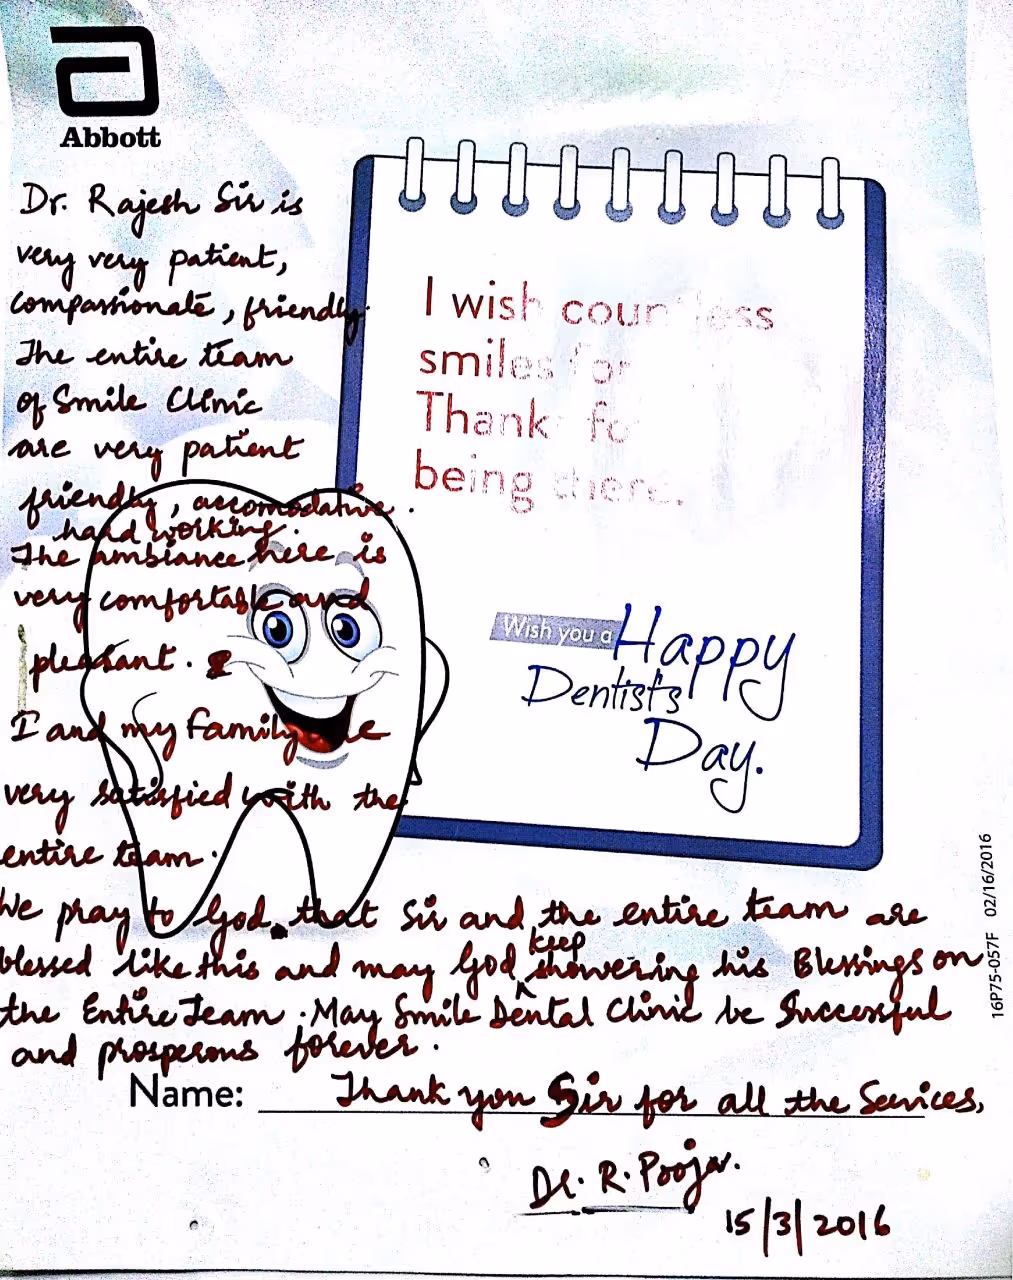 Abbott
Dr. Rajesh Sir is
very very patient,
compassionate, friendly.
The entire team
of Smile Clinic
are very patient
friendly, accomodative.
hard working.
The ambiance here is
very comfortable and
pleasant.
I and my family are
very satisfied with the
entire team.
We pray to God. that Sir and the entire team are
blessed like this and may God keep showering his Blessings on
the Entire Team. May Smile Dental Clinic be Successful
and prosperous forever.
I wish countless
smiles for
Thanks for
being there.
Wish you a Happy
Dentist's
Day.
16P75-057F 02/16/2016
Name: Thank you Sir for all the Services,
Dr. R. Pooja.
15/3/2016